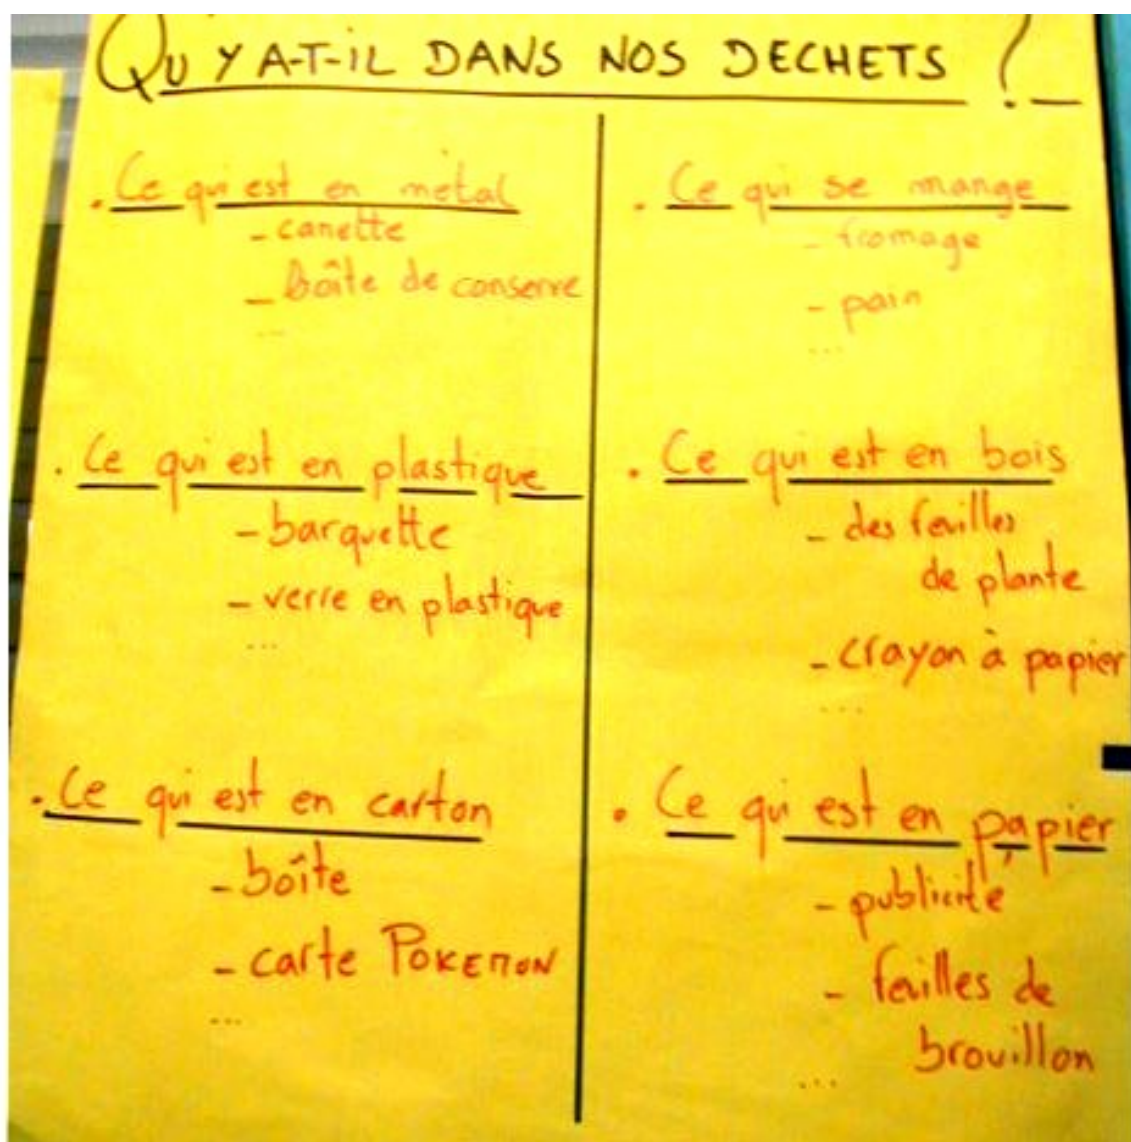 QU'Y A-T-IL DANS NOS DECHETS ?
. Ce qui est en métal
- canette
- boîte de conserve
...
. Ce qui est en plastique
- barquette
- verre en plastique
...
. Ce qui est en carton
- boîte
- carte POKEMON
...
. Ce qui se mange
- fromage
- pain
...
. Ce qui est en bois
- des feuilles
de plante
- crayon à papier
...
. Ce qui est en papier
- publicité
- feuilles de
brouillon
...